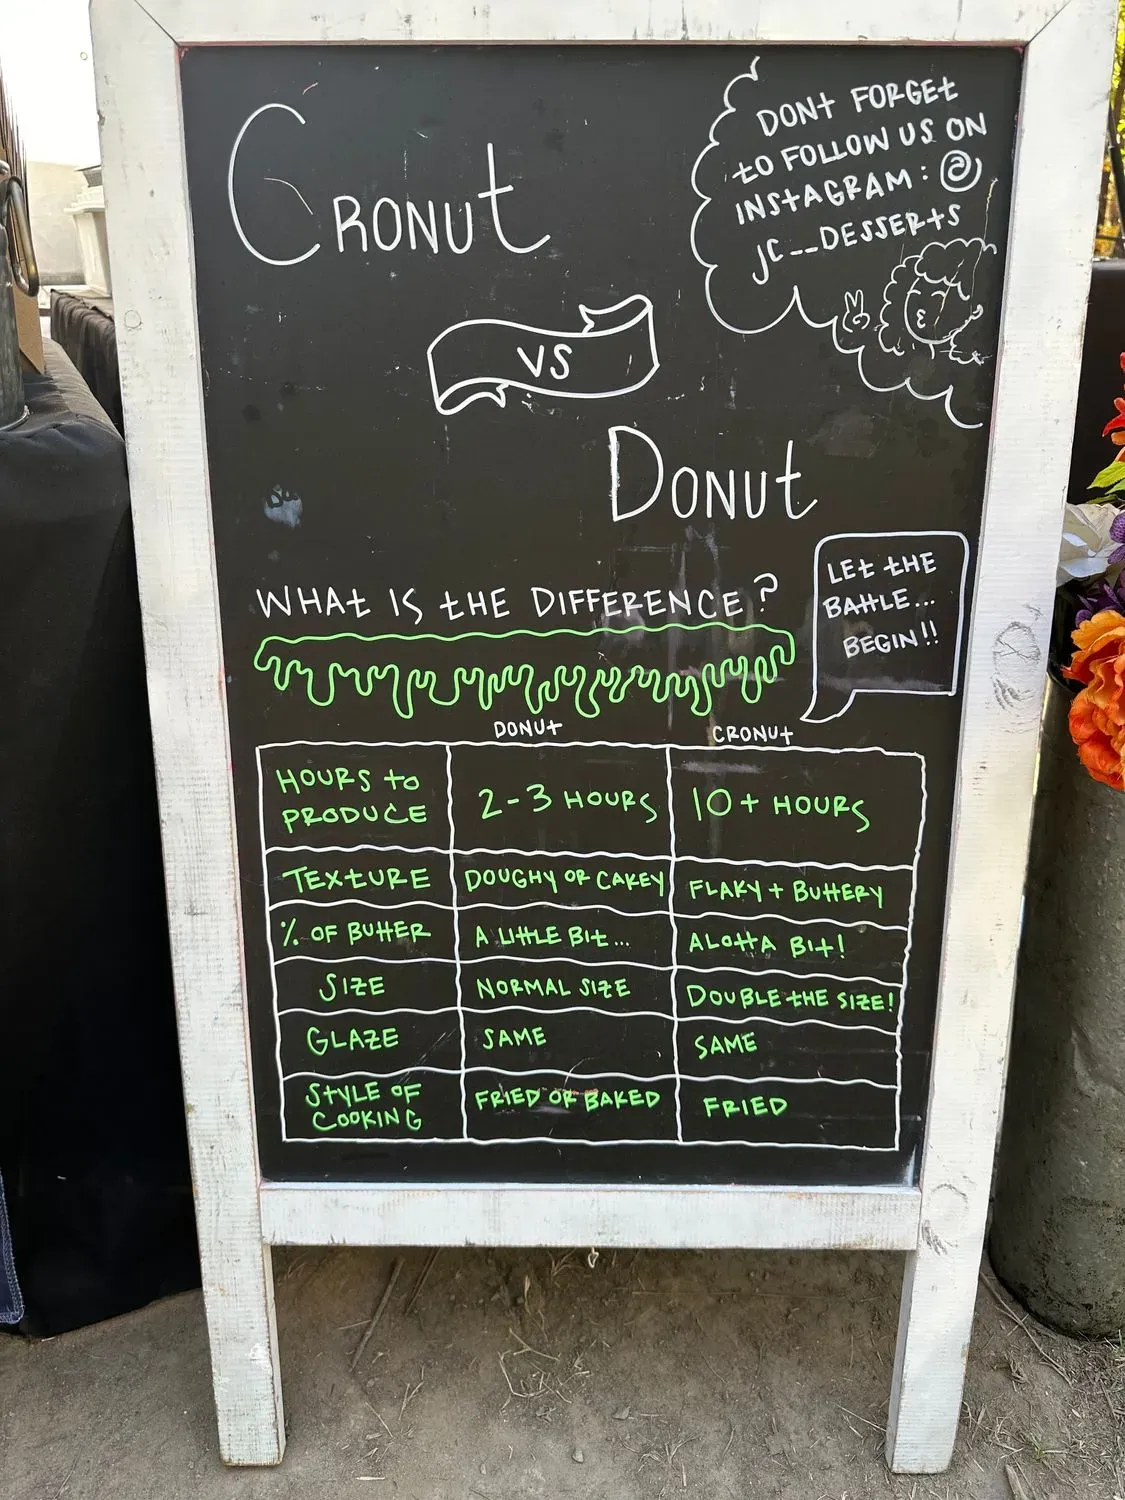 CRONUT
DONT FORGET
TO FOLLOW US ON
INSTAGRAM: @
JC__DESSERTS
VS
DONUT
WHAT IS THE DIFFERENCE?
LET THE
BATTLE...
BEGIN!!
DONUT CRONUT
HOURS TO
PRODUCE
2-3 HOURS
10+ HOURS
TEXTURE
DOUGHY OR CAKEY
FLAKY + BUTTERY
% OF BUTTER
A LITTLE BIT...
ALOTTA BIT!
SIZE
NORMAL SIZE
DOUBLE THE SIZE!
GLAZE
SAME
SAME
STYLE OF
COOKING
FRIED OR BAKED
FRIED